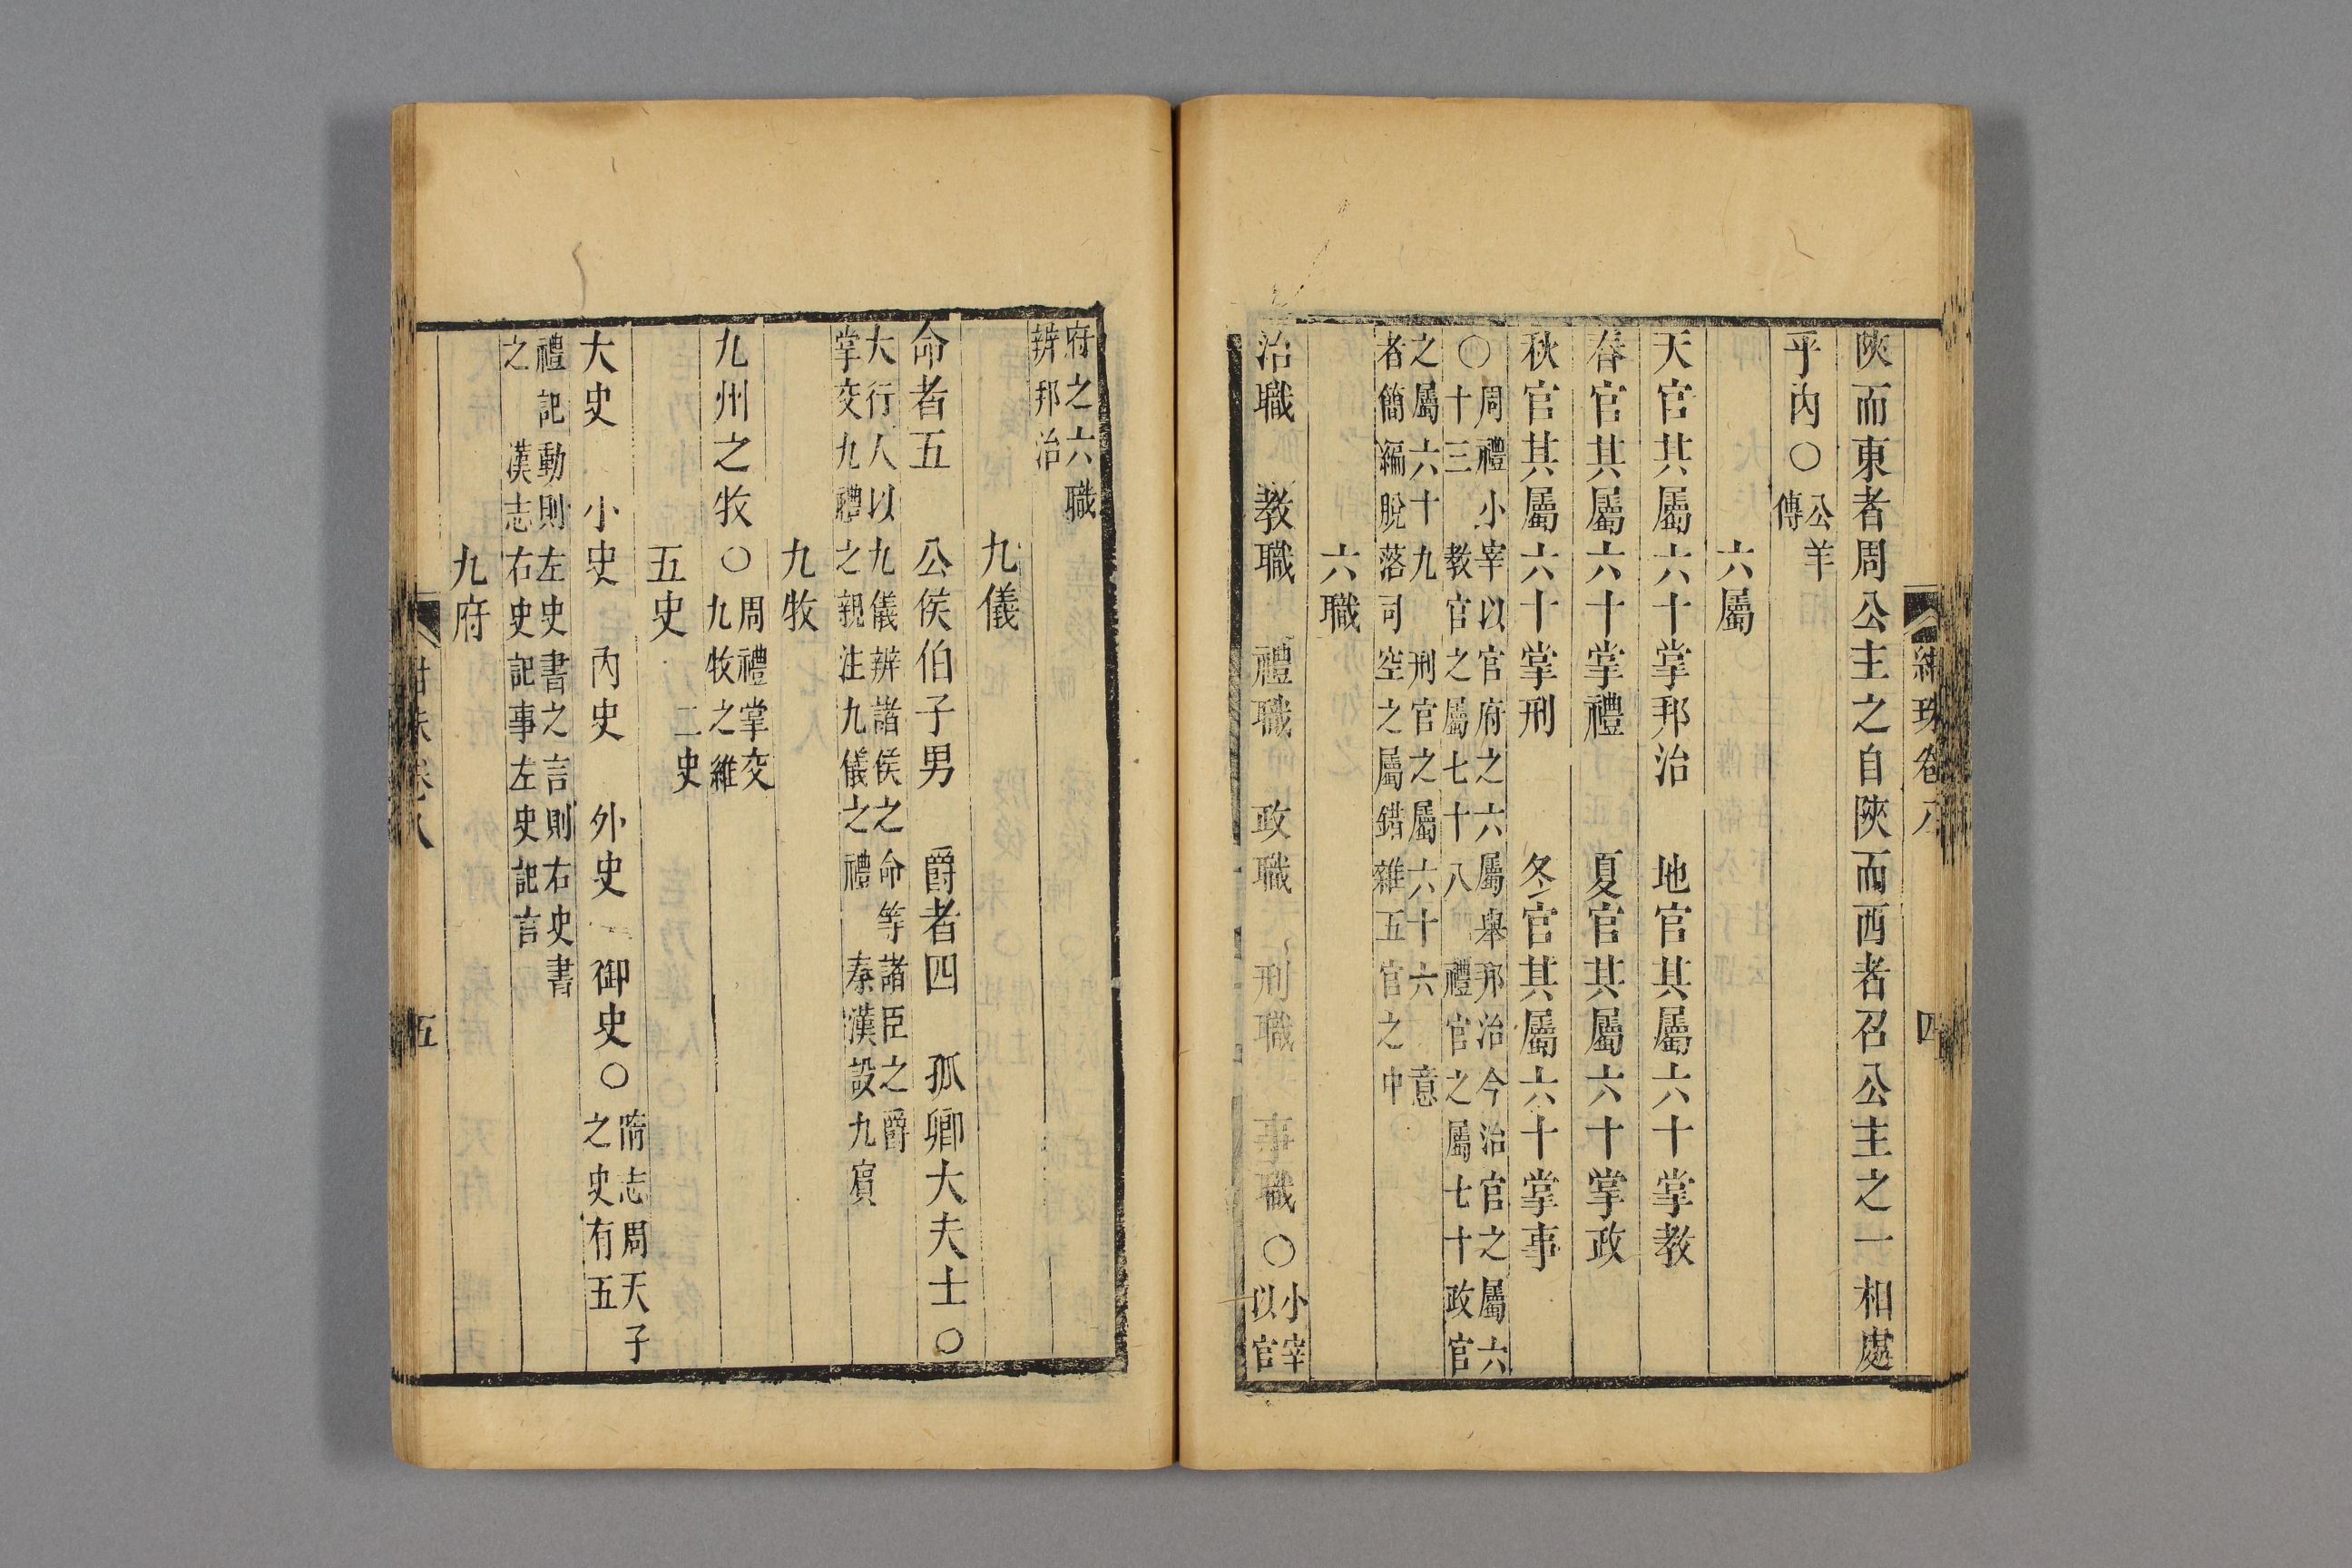 紺珠卷八 四
陝而東者周公主之自陝而西者召公主之一相處
乎內○公羊
傳
六屬
天官其屬六十掌邦治 地官其屬六十掌教
春官其屬六十掌禮 夏官其屬六十掌政
秋官其屬六十掌刑 冬官其屬六十掌事
○周禮小宰以官府之六屬舉邦治今治官之屬六
十三 教官之屬七十八 禮官之屬七十政官
之屬六十九 刑官之屬六十六 意
者簡編脫落司空之屬錯雜五官之中
六職
治職 教職 禮職 政職 刑職 事職○小宰
以官
府之六職
辨邦治
九儀
命者五 公侯伯子男 爵者四 孤卿大夫士○
大行人以九儀辨諸侯之命等諸臣之爵
掌交九禮之親注九儀之禮 秦漢設九賓
九牧
九州之牧○周禮掌交
九牧之維
五史 二史
大史 小史 內史 外史 御史○隋志周天子
之史有五
禮記動則左史書之言則右史書
之 漢志右史記事左史記言
九府
紺珠卷八 五